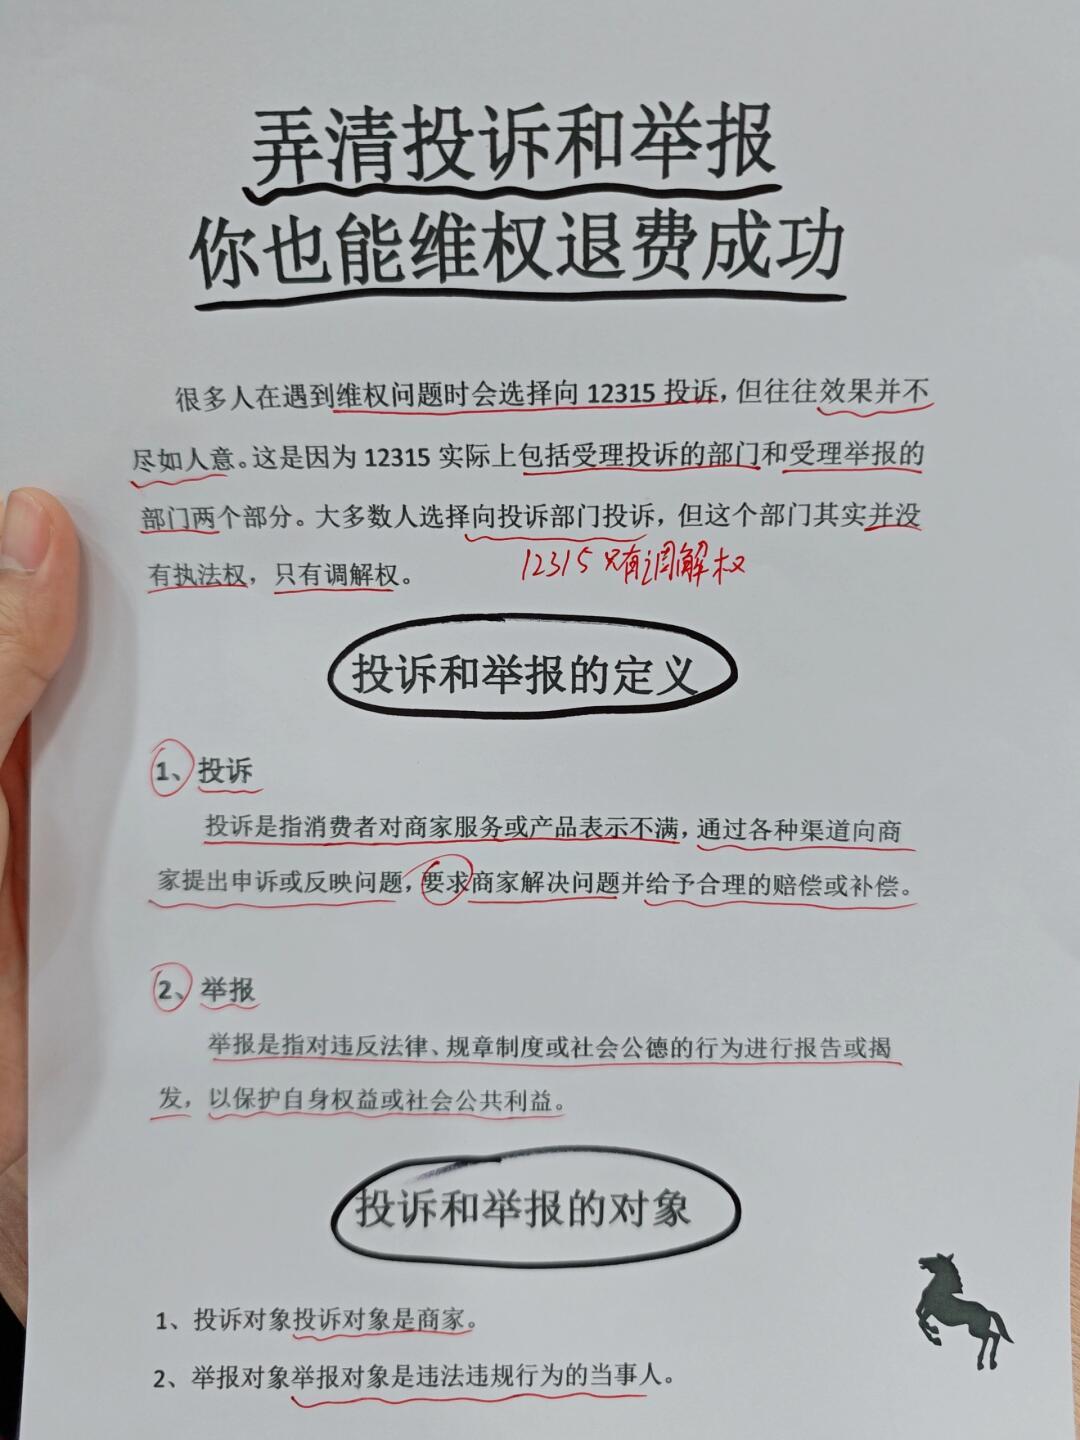 弄清投诉和举报
你也能维权退费成功
很多人在遇到维权问题时会选择向 12315 投诉，但往往效果并不
尽如人意。这是因为 12315 实际上包括受理投诉的部门和受理举报的
部门两个部分。大多数人选择向投诉部门投诉，但这个部门其实并没
有执法权，只有调解权。
12315 只有调解权
投诉和举报的定义
1、投诉
投诉是指消费者对商家服务或产品表示不满，通过各种渠道向商
家提出申诉或反映问题，要求商家解决问题并给予合理的赔偿或补偿。
2、举报
举报是指对违反法律、规章制度或社会公德的行为进行报告或揭
发，以保护自身权益或社会公共利益。
投诉和举报的对象
1、投诉对象投诉对象是商家。
2、举报对象举报对象是违法违规行为的当事人。